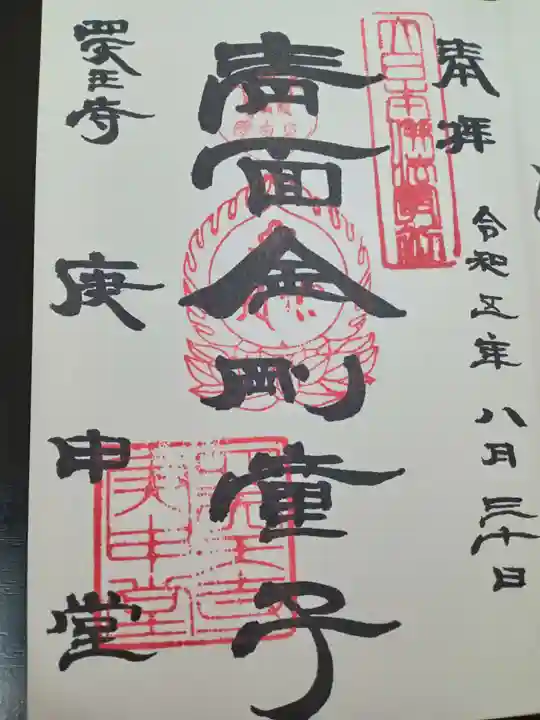 奉拝
令和五年八月三十日
大日本佛法最初
青面金剛童子
四天王寺
庚申堂
四天王寺
庚申堂